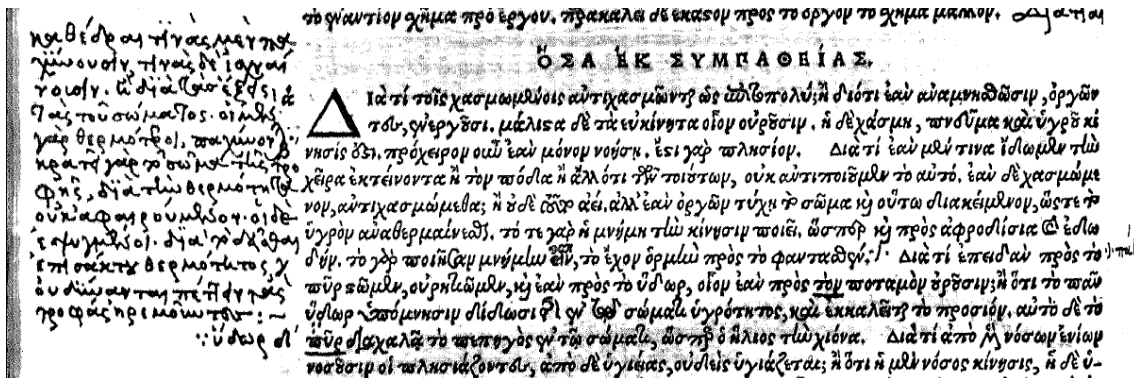 καθέδραι τινὰς μὲν πα
χύνουσιν, τινὰς δὲ ἰσχναί
νουσιν. ἢ διὰ τὰς ἕξεις,
τὰς τοῦ σώματος. οἱ μὲν
γὰρ θερμότεροι, παχύνον
κρατεῖ γὰρ τὸ σῶμα τῆς τρο
φῆς, διὰ τὴν θερμότητα
οὐκ ἀφαιρούμενον. οἱ δὲ
ἐψυγμένοι, διὰ τὸ δεῖσθαι
ἐπισάκτου θερμότητος,
οὐ δύνανται πέττειν τὰς
τροφὰς ἠρεμοῦντες:
ὕδωρ δὶ
τὸ ἐναντίον σχῆμα πρὸ ἔργου. προκαλεῖ δὲ ἕκαστον πρὸς τὸ ὄργον τὸ σχῆμα μᾶλλον. Διατί
ὍΣΑ ἘΚ ΣΥΜΠΑΘΕΊΑΣ.
Διατί τοῖς χασμωμένοις ἀντιχασμῶνται ὡς ἐπιτοπολύ; ἢ διότι ἐὰν ἀναμνησθῶσιν, ὀργῶν
τες, ἐνεργοῦσι. μάλιστα δὲ τὰ εὐκίνητα οἷον οὐροῦσιν. ἡ δὲ χάσμη, πνεῦμα καὶ ὑγροῦ κί
νησίς ἐστι. πρόχειρον οὖν ἐὰν μόνον νοήσῃ. ἔστι γὰρ πλησίον. Διατί ἐὰν μέν τινα ἴδωμεν τὴν
χεῖρα ἐκτείνοντα ἢ τὸν πόδα ἢ ἄλλό τι τῶν τοιούτων, οὐκ ἀντιποιοῦμεν τὸ αὐτό. ἐὰν δὲ χασμώμε
νον, ἀντιχασμώμεθα; ἢ οὐδὲ τοῦτο ἀεί. ἀλλ' ἐὰν ὀργῶν τύχῃ τὸ σῶμα καὶ οὕτω διακείμενον, ὥστε τὸ
ὑγρὸν ἀναθερμαίνεσθαι. τό τε γὰρ ἡ μνήμη τὴν κίνησιν ποιεῖ, ὥσπερ καὶ πρὸς ἀφροδίσια καὶ ἐδω
δήν. τὸ γὰρ ποιῆσαν μνήμην εἶναι, τὸ ἔχον ὁρμὴν πρὸς τὸ φαντασθέν. Διατί ἐπειδὰν πρὸς τὸ
πῦρ στῶμεν, οὐρητιῶμεν, καὶ ἐὰν πρὸς τὸ ὕδωρ, οἷον ἐὰν πρὸς τὸν ποταμὸν οὐροῦσιν; ἢ ὅτι τὸ πᾶν
ὕδωρ ὑπόμνησιν δίδωσι τῆς ἐν τῷ σώματι ὑγρότητος, καὶ ἐκκαλεῖται τὸ προσιόν. αὐτὸ δὲ τὸ
πῦρ διαχαλᾷ τὸ πεπηγὸς ἐν τῷ σώματι, ὥσπερ ὁ ἥλιος τὴν χιόνα. Διατί ἀπὸ μὲν νόσων ἐνίων
νοσοῦσιν οἱ πλησιάζοντες, ἀπὸ δὲ ὑγιείας, οὐδεὶς ὑγιάζεται; ἢ ὅτι ἡ μὲν νόσος κίνησις, ἡ δὲ ὑ-